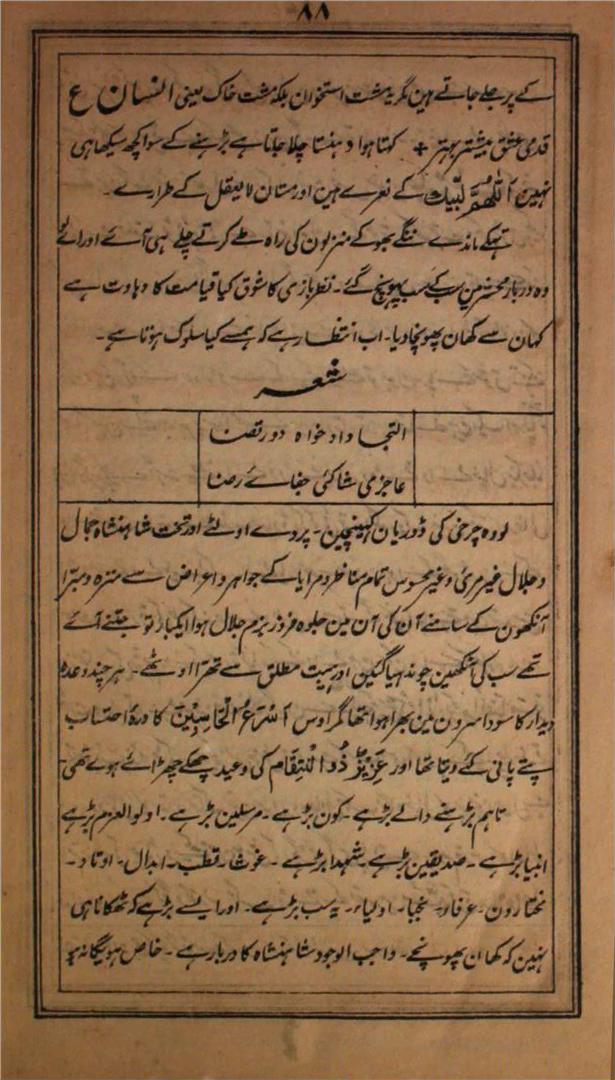 ۸۸
کے پر جلے جاتے ہین مگر یہ مشت استخوان بلکہ مشت خاک یعنی النسان ع
قدمی عشق پیشتر بہتر + کہتا ہوا دہنستا چلا جاتا ہے بڑہنے کے سوا کچھ سیکھا ہی
نہین اَللّٰھُمَّ لَبَّیْک کے نعرے ہین اور مستان لا یعقل کے طرارے۔
تہکے ماندے ننگے بھوکے منزلون کی راہ طے کرتے چلے ہی آئے اور لے
وہ دربار محشر مین سب کے سب پہونچ گئے۔ نظر بازی کا شوق کیا قیامت کا دہاوت ہے
کہان سے کھان پھونچا دیا۔ اب انتظار ہے کہ ہمسے کیا سلوک ہوتا ہے۔
شعر
التجا داد خواہ دور قضا
عاجزی شاکئ جفاے رضا
لو وہ چرخی کی ڈوریان کہینچین۔ پردے اولٹے اور تخت شاہنشاہ جمال
و جلال غیر مرئ و غیر محسوس تمام مناظر و مرایا کے جواہر و اعراض سے منزہ و مبترا
آنکھون کے سامنے آن کی آن مین جلوہ فروز بزم جلال ہوا ایکبار تو جتنے آئے
تھے سب کی آنکھین چوندہیا گئین اور ہیبت مطلق سے تھرا اوٹھے۔ ہر چند وعدہ
دیدار کا سودا سرون مین بھرا ہوا تھا مگر اوس اَسْرَعُ الْحَاسِبِیْنَ کا درۂ احتساب
پتے پانی کئے دیتا تھا اور عَزِیْزٌ ذُو الْنتِقَام کی وعید چھکے چھڑائے ہوے تھی
تاہم بڑہنے والے بڑہے۔ کون بڑہے۔ مرسلین بڑہے۔ اولوالعزم بڑہے
انبیا بڑہے۔ صدیقین بڑہے۔ شہدا بڑہے۔ غوث۔ قطب۔ ابدال۔ اوتاد۔
نختارون۔ عرفا۔ نجبا۔ اولیاء۔ یہ سب بڑہے۔ اور ایسے بڑہے کہ ٹھکانا ہی
نہین کہ کھان پھونچے۔ واجب الوجود شاہنشاہ کا دربار ہے۔ خاص ہو بیگانہ ہو